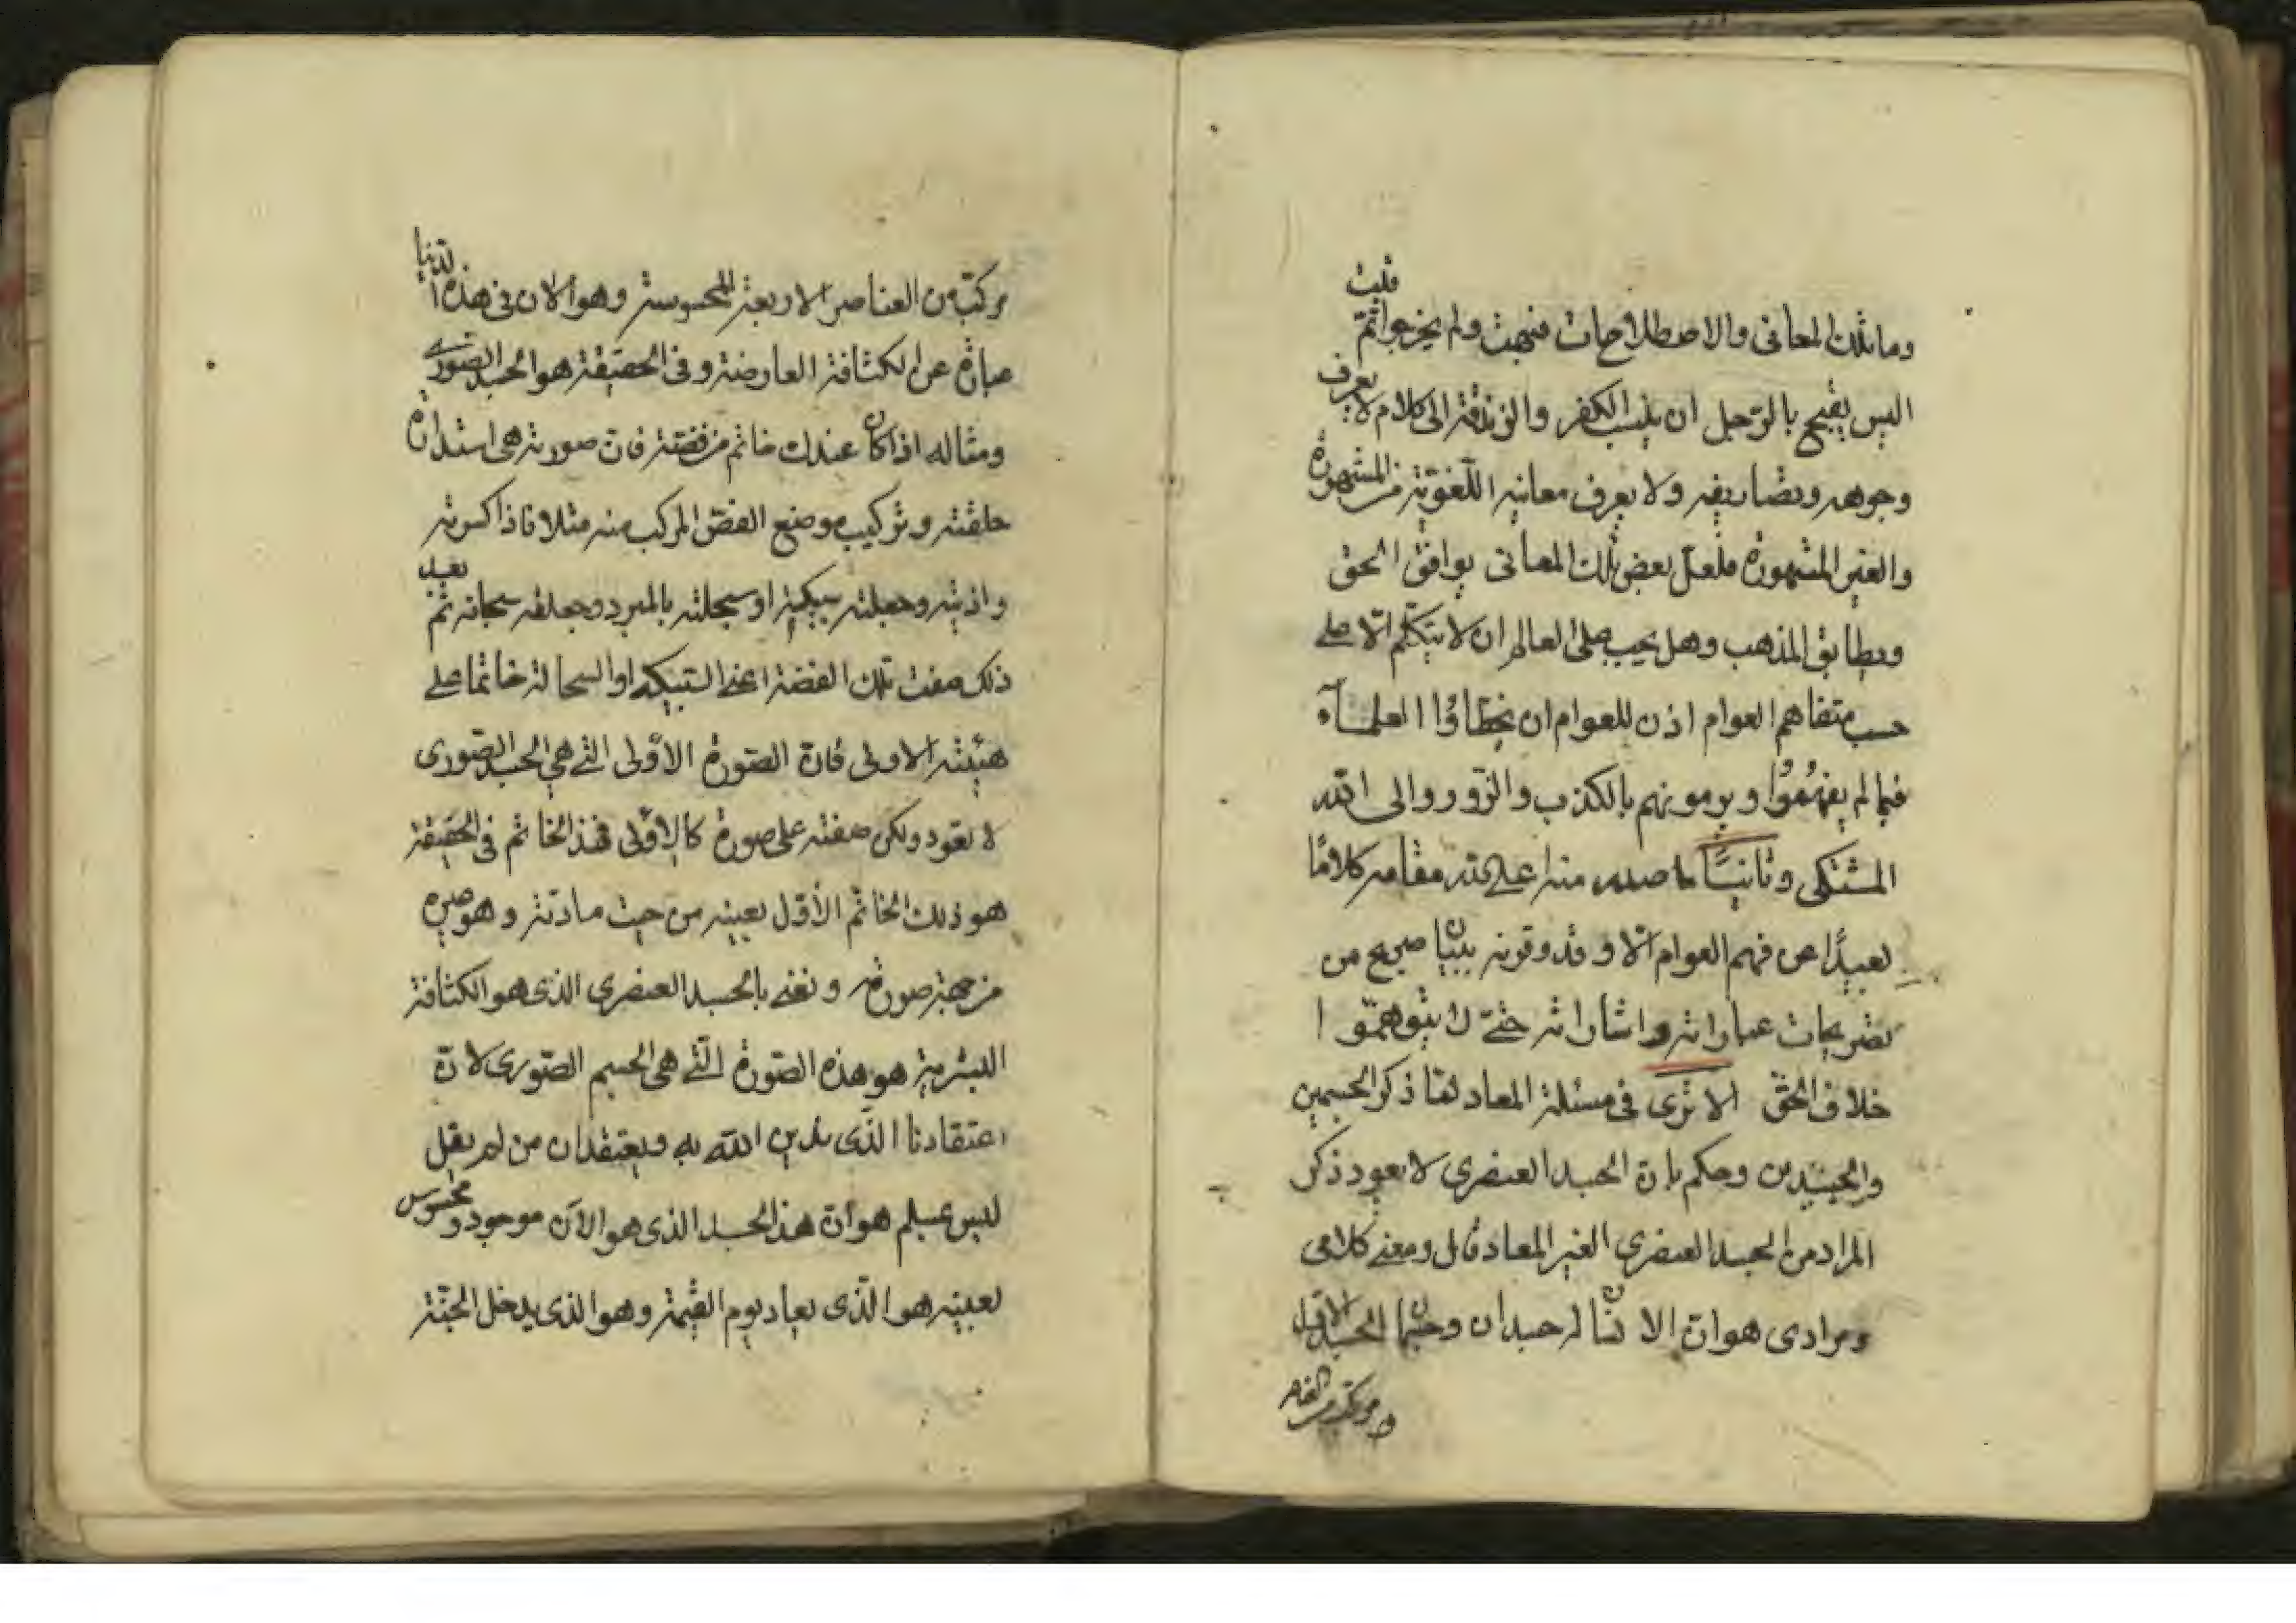 وما تلك المعانى والاصطلاحات فبهت ولم يخرجوا ثم قلت
اليس يقبح بالرجل ان ينسب الكفر والزندقة الى كلام لا يعرف
وجوهه وتصاريفه ولا يعرف معانيه اللغوية من المشهورة
والغير المشهورة فلعل بعض تلك المعانى يوافق الحق
ويطابق المذهب وهل يجب على العالم ان لا يتكلم الا على
حسب متفاهم العوام اذن للعوام ان يخطاؤا العلماء
فيما لم يفهموا ويرمونهم بالكذب والزور والى الله
المشتكى وثانيًا ما صدر منه اعلى الله مقامه كلامًا
بعيدًا عن فهم العوام الا وقد وقرنه ببيان صريح من
تصريحات عباراته واشاراته حتى لا يتوهموا
خلاف الحق الا ترى فى مسئلة المعاد لما ذكر الجسمين
والجسدين وحكم بان الجسد العنصرى لا يعود ذكر
المراد من الجسد العنصرى الغير المعاد قال ومعنى كلامى
ومرادى هو ان الانسان له جسدان وجسمان الجسد الاول
مركب من العناصر الاربعة المحسوسة وهو الان فى هذه الدنيا
عبارة عن الكثافة العارضة وفى الحقيقة هو الجسد الصورى
ومثاله اذا كان عندك خاتم من فضة فان صورته هى استدارة
حلقته وتركيب موضع الفص المركب منه مثلا فاذا كسرته
واذبته وجعلته سبيكة او سحلته بالمبرد وجعلته سحالة ثم بعد
ذلك صغت تلك الفضة اعنى السبيكة او السحالة خاتما على
هيئته الاولى فان الصورة الاولى التى هى الجسد الصورى
لا تعود ولكن صغته على صورة كالاولى فهذا الخاتم فى الحقيقة
هو ذلك الخاتم الاول بعينه من حيث مادته وهو غيره
من جهة صورته ونعنى بالجسد العنصرى الذى هو الكثافة
البشرية هو هذه الصورة التى هى الجسم الصورى لان
اعتقادنا الذى ندين الله به ونعتقد ان من لم يقل
ليس بمسلم هو ان هذا الجسد الذى هو الآن موجود ومحسوس
بعينه هو الذى يعاد يوم القيمة وهو الذى يدخل الجنة